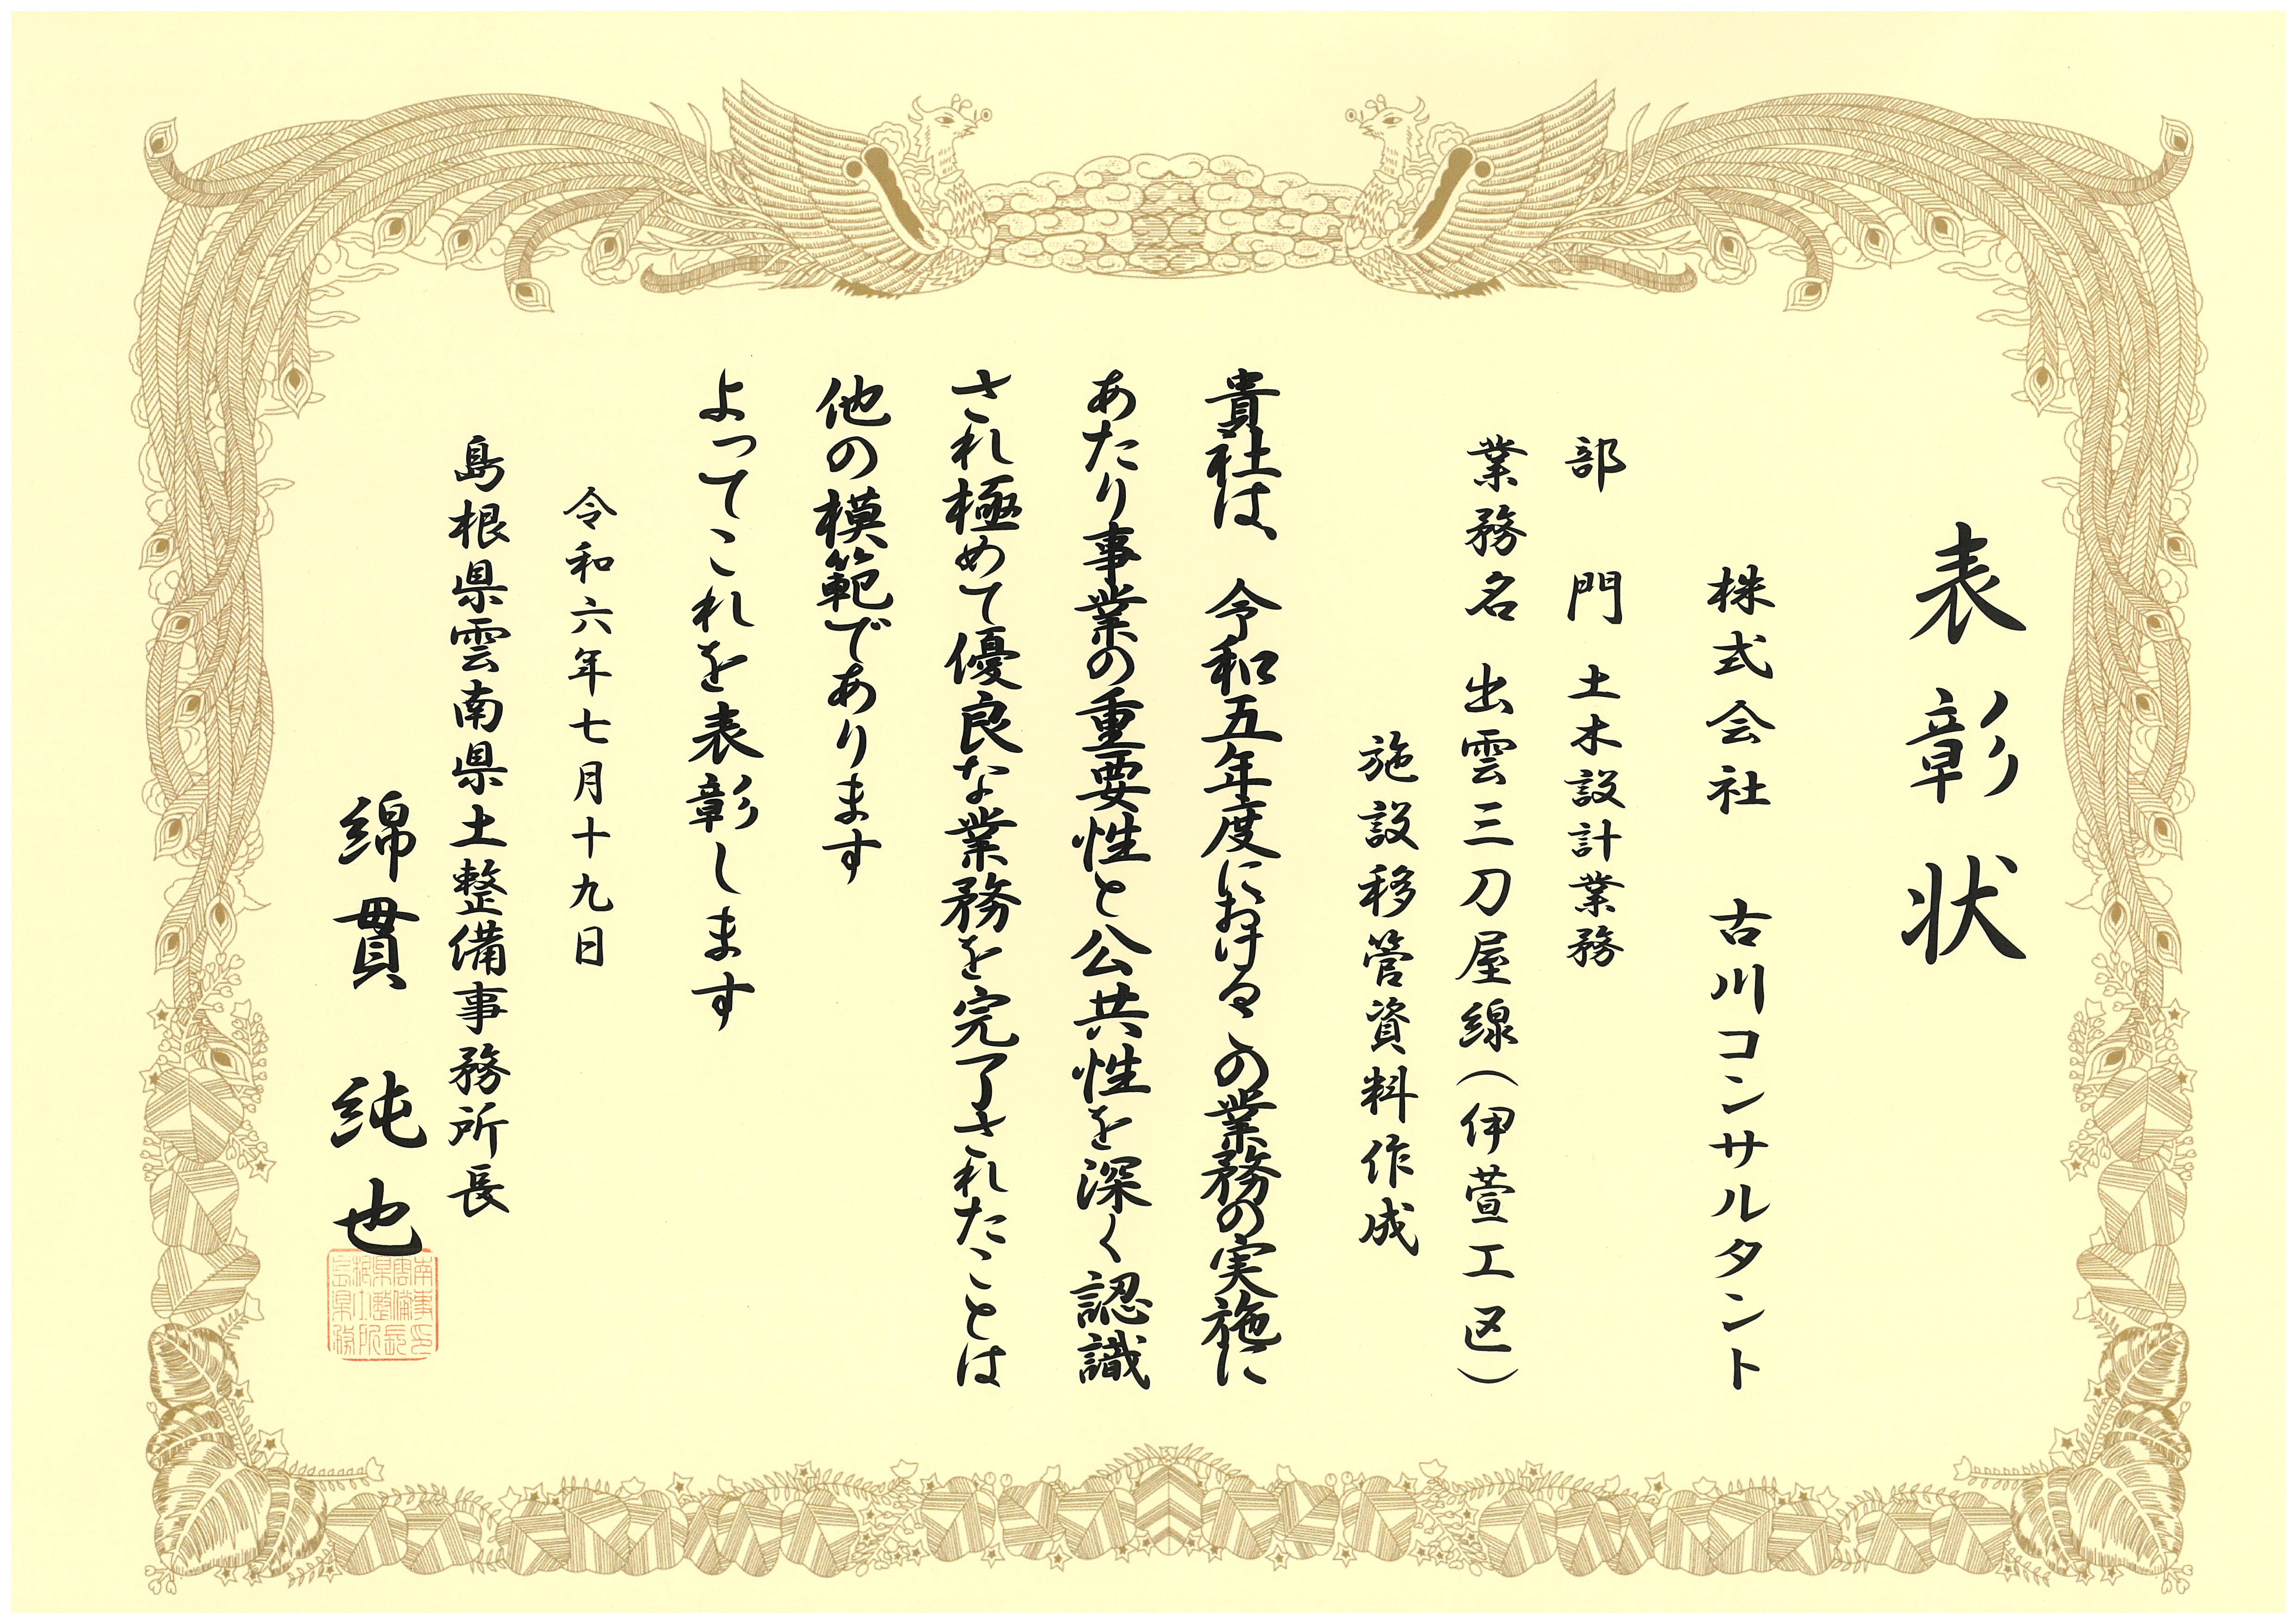 表彰状
株式会社 古川コンサルタント
部 門 土木設計業務
業務名 出雲三刀屋線(伊萱工区)
施設移管資料作成
貴社は、令和五年度におけるこの業務の実施に
あたり事業の重要性と公共性を深く認識
され極めて優良な業務を完了されたことは
他の模範であります
よってこれを表彰します
令和六年七月十九日
島根県雲南県土整備事務所長
綿貫 純也